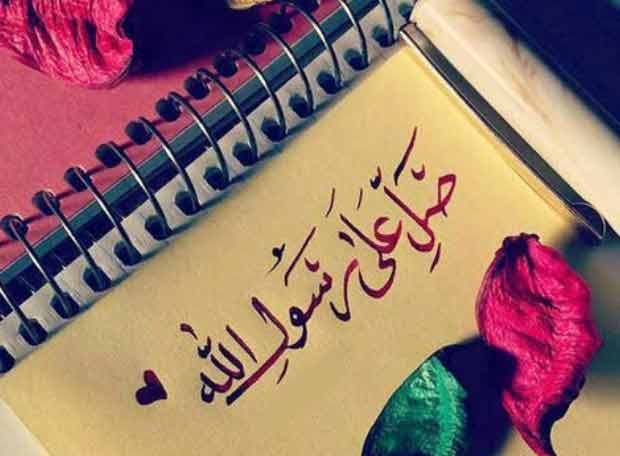 صَلِّ عَلَى رَسُولِ اللّٰه